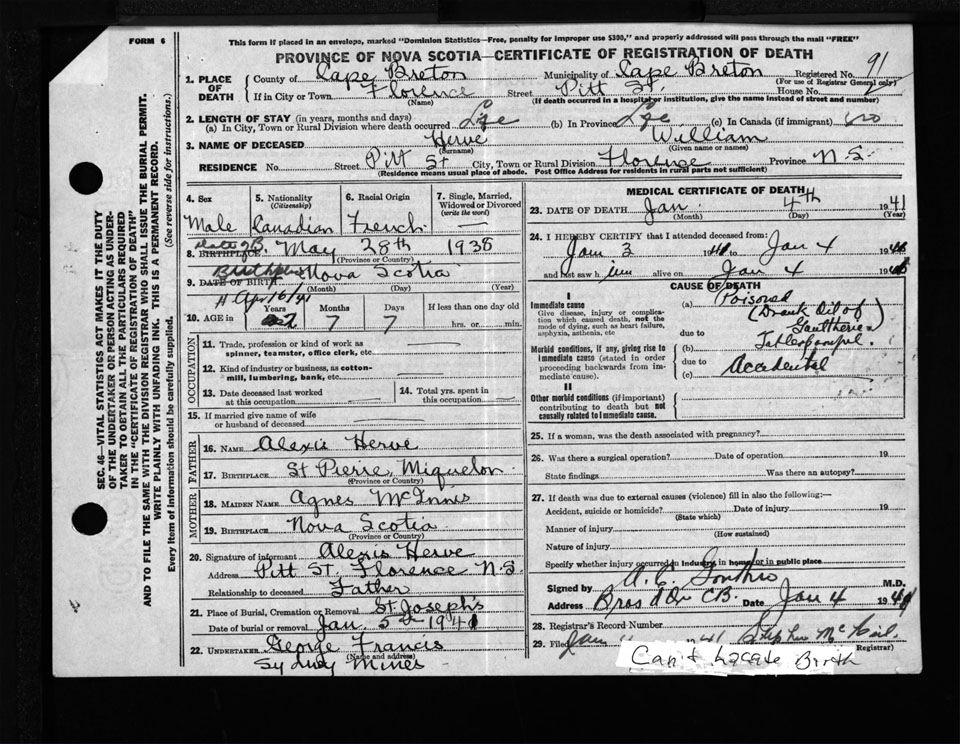 FORM 6
This form if placed in an envelope, marked "Dominion Statistics—Free, penalty for improper use $300," and properly addressed will pass through the mail "FREE"
PROVINCE OF NOVA SCOTIA—CERTIFICATE OF REGISTRATION OF DEATH
SEC. 46—VITAL STATISTICS ACT MAKES IT THE DUTY
OF THE UNDERTAKER OR PERSON ACTING AS UNDER-
TAKER TO OBTAIN ALL THE PARTICULARS REQUIRED
IN THE "CERTIFICATE OF REGISTRATION OF DEATH"
AND TO FILE THE SAME WITH THE DIVISION REGISTRAR WHO SHALL ISSUE THE BURIAL PERMIT.
WRITE PLAINLY WITH UNFADING INK. THIS IS A PERMANENT RECORD.
Every item of information should be carefully supplied. (See reverse side for instructions.)
1. PLACE OF DEATH County of Cape Breton Municipality of Cape Breton Registered No. 91
(For use of Registrar General only)
If in City or Town Florence Street Pitt St. House No.
(Name) (If death occurred in a hospital or institution, give the name instead of street and number)
2. LENGTH OF STAY (in years, months and days)
(a) In City, Town or Rural Division where death occurred Life (b) In Province Life (c) In Canada (if immigrant) no
3. NAME OF DECEASED Herve William
(Surname) (Given name or names)
RESIDENCE No. Street Pitt St City, Town or Rural Division Florence Province N.S.
(Residence means usual place of abode. Post Office Address for residents in rural parts not sufficient)
4. Sex Male
5. Nationality (Citizenship) Canadian
6. Racial Origin French
7. Single, Married, Widowed or Divorced (write the word) —
8. BIRTHPLACE Date of B. May 28th 1938
(Province or Country)
9. DATE OF BIRTH Birthplace Nova Scotia
(Month) (Day) (Year)
Apr 16/41
10. AGE in Years 2 Months 7 Days 7 If less than one day old
hrs. or min.
OCCUPATION
11. Trade, profession or kind of work as spinner, teamster, office clerk, etc. —
12. Kind of industry or business, as cotton-mill, lumbering, bank, etc. —
13. Date deceased last worked at this occupation —
14. Total yrs. spent in this occupation —
15. If married give name of wife or husband of deceased
FATHER
16. NAME Alexis Herve
17. BIRTHPLACE St Pierre Miquelon
(Province or Country)
MOTHER
18. MAIDEN NAME Agnes McInnis
19. BIRTHPLACE Nova Scotia
(Province or Country)
20. Signature of informant Alexis Herve
Address Pitt St. Florence N.S.
Relationship to deceased Father
21. Place of Burial, Cremation or Removal St. Joseph's
Date of burial or removal Jan. 5th 1941
22. UNDERTAKER George Francis
(Name and address)
Sydney Mines
MEDICAL CERTIFICATE OF DEATH
23. DATE OF DEATH Jan. 4th 1941
(Month) (Day) (Year)
24. I HEREBY CERTIFY that I attended deceased from:
Jan 3 41 to Jan 4 194
and last saw h im alive on Jan 4 194
CAUSE OF DEATH
I
Immediate cause
Give disease, injury or complication which caused death, not the mode of dying, such as heart failure, asphyxia, asthenia, etc
Morbid conditions, if any, giving rise to immediate cause (stated in order proceeding backwards from immediate cause).
II
Other morbid conditions (if important) contributing to death but not causally related to immediate cause.
(a) Poisoned
(Drank Oil of
due to Gaultheria
(b) Tablespoonful.
due to
(c) Accidental
25. If a woman, was the death associated with pregnancy?
26. Was there a surgical operation? Date of operation 19
State findings Was there an autopsy?
27. If death was due to external causes (violence) fill in also the following:—
Accident, suicide or homicide? Date of injury 19
(State which)
Manner of injury
(How sustained)
Nature of injury
Specify whether injury occurred in Industry, in home or in public place
Signed by A. C. Gouthro M.D.
Address Bras d'Or CB. Date Jan 4 1941
28. Registrar's Record Number
29. Filed Jan 1941 Stephen McNeil
Registrar)
Can't Locate Birth